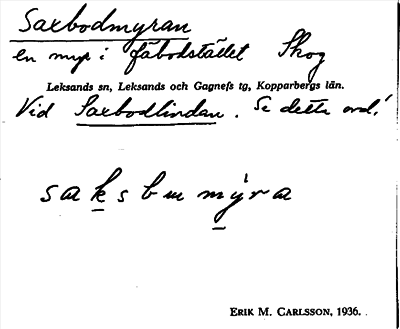 Saxbodmyran
en myr i fäbodstället Skog
Leksands sn, Leksands och Gagnefs tg, Kopparbergs län.
Vid Saxbodlindan. Se detta ord!
saksbu mýra
ERIK M. CARLSSON, 1936.